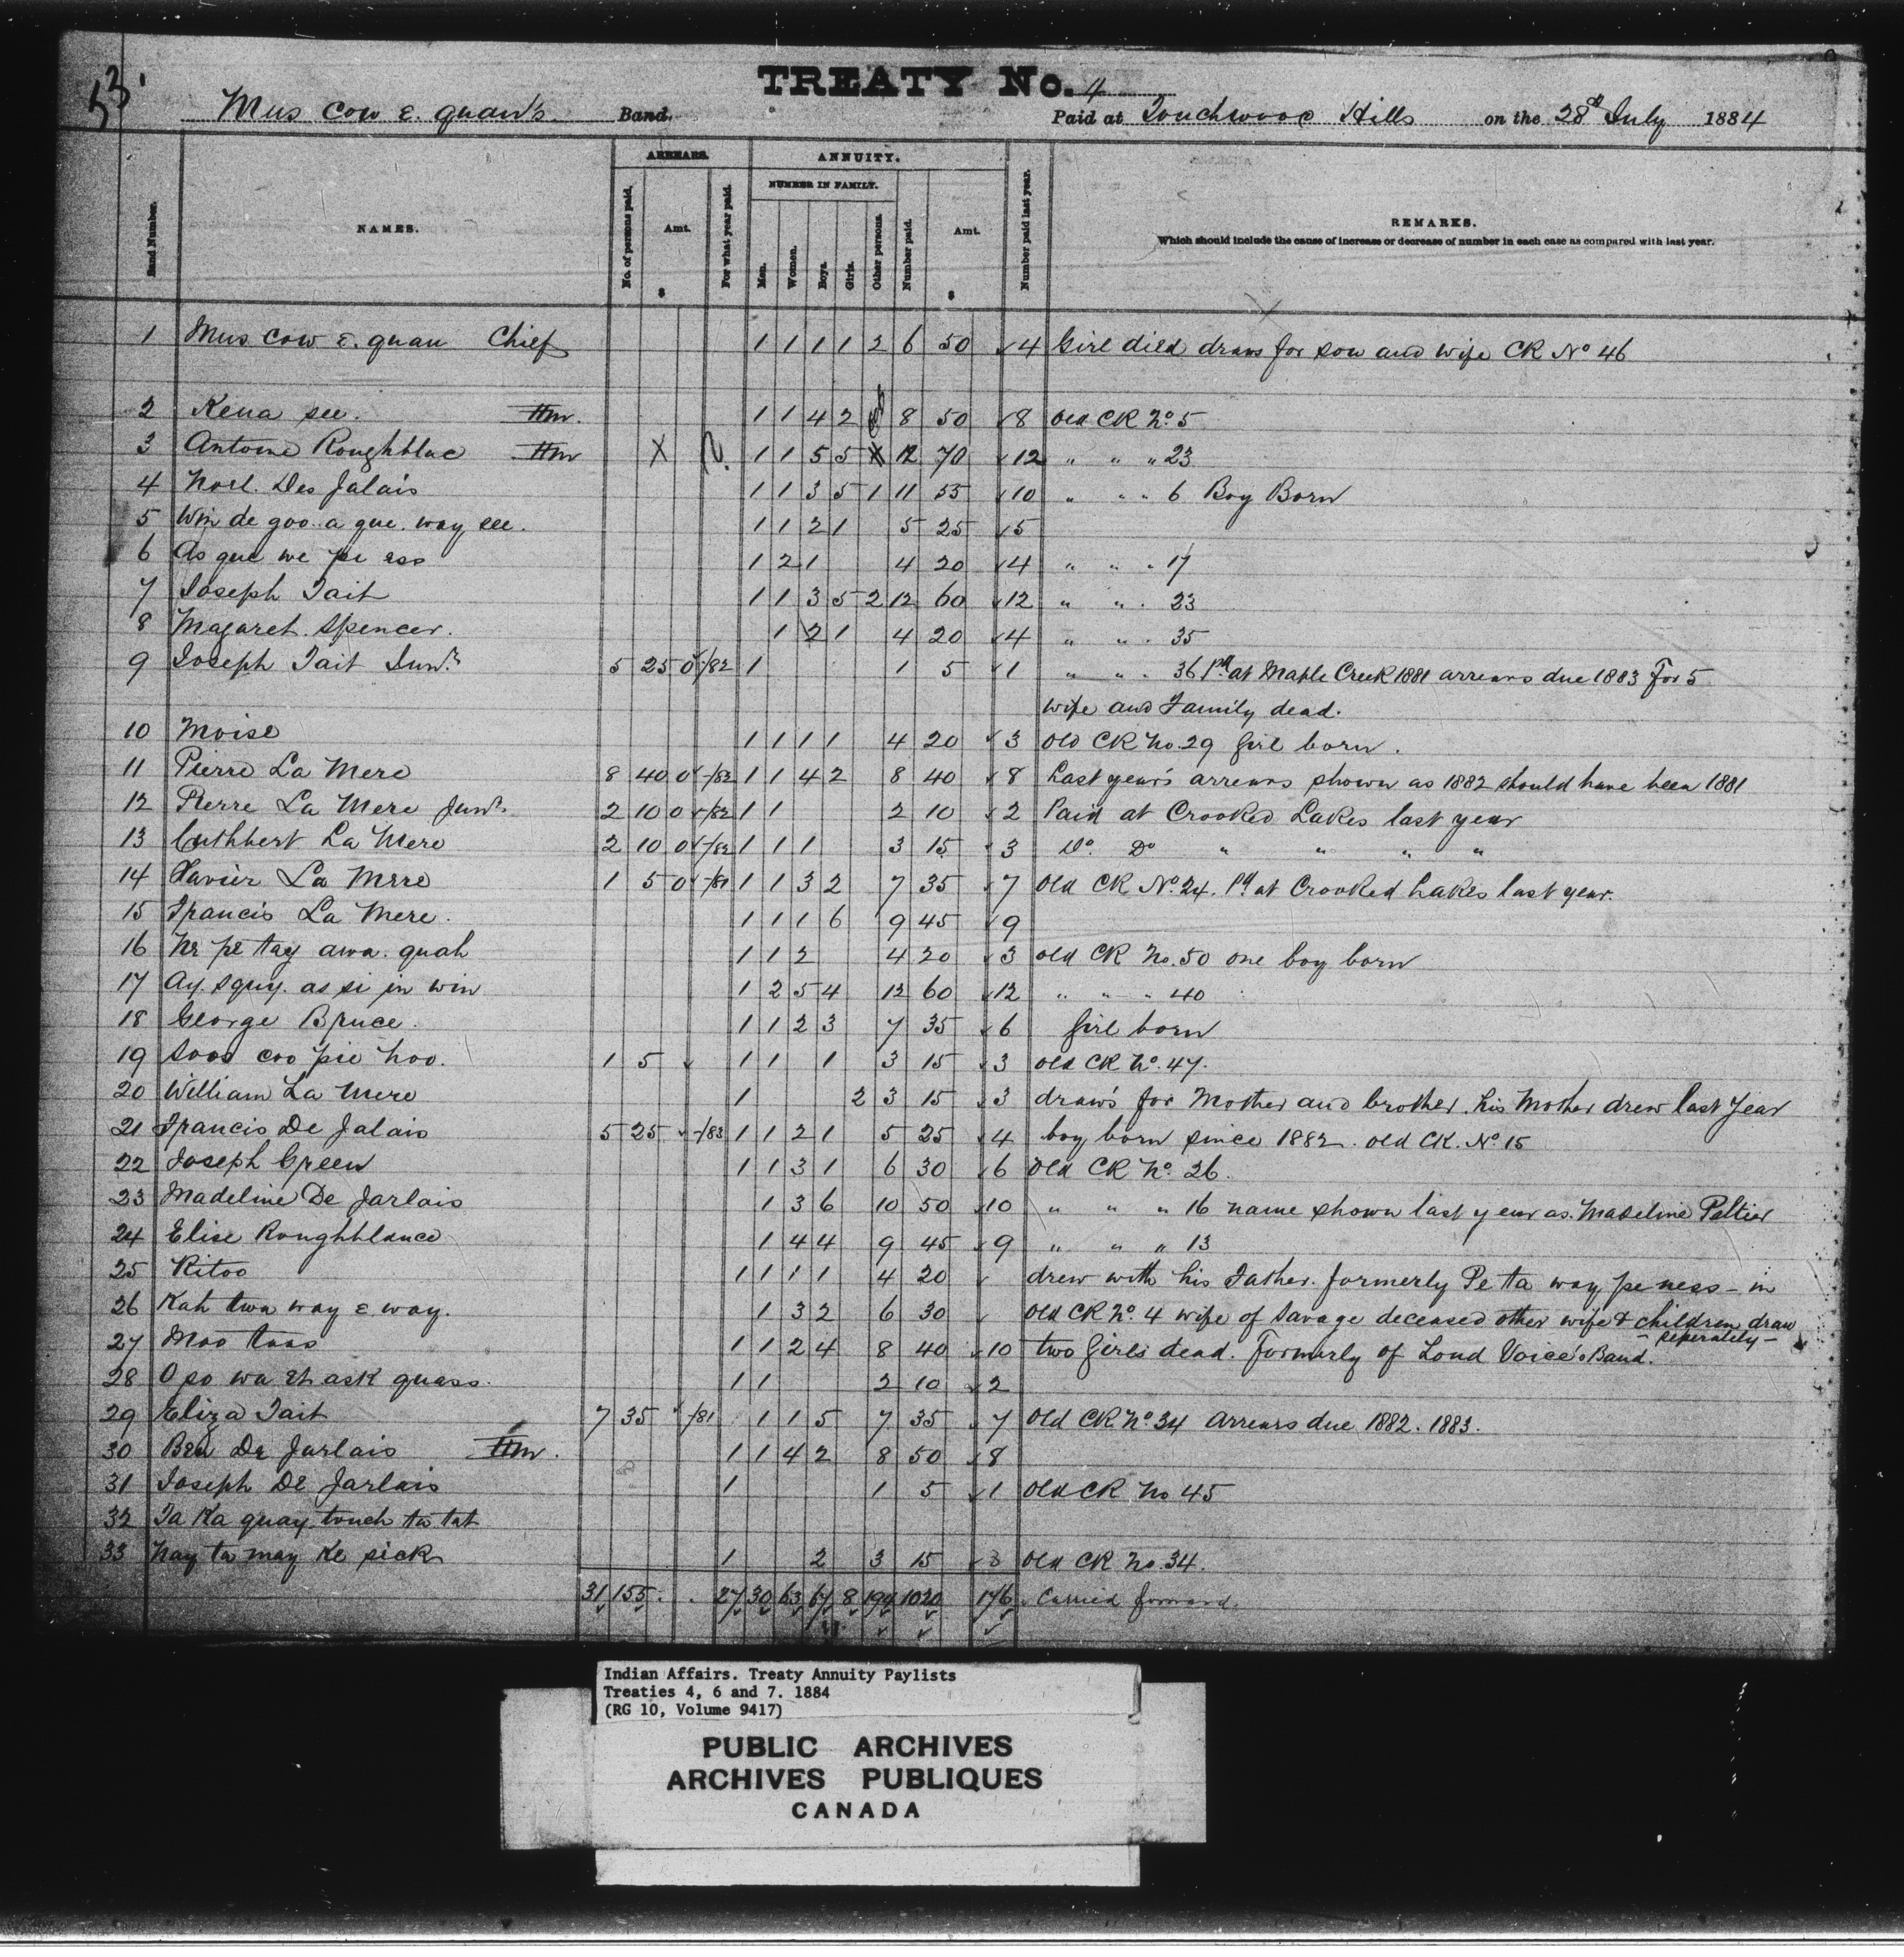 53.
TREATY No. 4
Mus cow E. quan's Band. Paid at Touchwood Hills on the 28th July 1884
ARREARS. ANNUITY.
NUMBER IN FAMILY.
Band Number. NAMES. No. of persons paid. Amt. $ For what year paid. Men. Women. Boys. Girls. Other persons. Number paid. Amt. $ Number paid last year. REMARKS.
Which should include the cause of increase or decrease of number in each case as compared with last year.
1 Mus cow E. quan Chief 1 1 1 1 2 6 50 4 Girl died draws for son and wife CK No 46
2 Kena see. Hm. 1 1 4 2 8 50 8 Old CK No 5
3 Antoine Roughblac Hm X 1 1 5 5 12 70 12 " " " 23
4 Noel. Des Jalais 1 1 3 5 1 11 55 10 " " " 6 Boy Born
5 Win de goo. a que. way see. 1 1 2 1 5 25 5
6 As que we pe ass 1 2 1 4 20 4 " " " 17
7 Joseph Tait 1 1 3 5 2 12 60 12 " " " 23
8 Magaret. Spencer. 1 2 1 4 20 4 " " " 35
9 Joseph Tait Junr. 5 25 0 -/82 1 1 5 1 " " " 36 Pd at Maple Creek 1881 arrears due 1883 For 5
wife and Family dead.
10 Moise 1 1 1 1 4 20 3 Old CK No. 29 Girl born.
11 Pierre La Mere 8 40 0 -/82 1 1 4 2 8 40 8 Last year's arrears shown as 1882 should have been 1881
12 Pierre La Mere Junr. 2 10 0 -/82 1 1 2 10 2 Paid at Crooked Lakes last year
13 Cuthbert La Mere 2 10 0 -/82 1 1 1 3 15 3 Do. Do " " " "
14 Xavier La Mere 1 5 0 -/81 1 1 3 2 7 35 7 Old CK No. 24. Pd at Crooked Lakes last year.
15 Francis La Mere. 1 1 1 6 9 45 9
16 Ne pe tay awa. quah 1 1 2 4 20 3 old CK No. 50 one boy born
17 Ay. squy. as si in win 1 2 5 4 12 60 12 " " " 40
18 George Bruce. 1 1 2 3 7 35 6 Girl born
19 Soos coo pie hoo. 1 5 1 1 1 3 15 3 old CK No. 47.
20 William La Mere 1 2 3 15 3 draws for Mother and brother. his Mother drew last year
21 Francis De Jalais 5 25 -/83 1 1 2 1 5 25 4 boy born since 1882. old CK. No 15
22 Joseph Green 1 1 3 1 6 30 6 Old CK No. 26.
23 Madeline De Jarlais 1 3 6 10 50 10 " " " 16 name shown last year as. Madeline Peltier
24 Elise Roughblance 1 4 4 9 45 9 " " " 13
25 Kitoo 1 1 1 1 4 20 drew with his Father. formerly Pe ta way pe ness - in
26 Kah twa way e way. 1 3 2 6 30 Old CK No. 4 wife of Savage deceased other wife & children draw
- seperately -
27 Moo toos 1 1 2 4 8 40 10 two Girls dead. Formerly of Loud Voice's Band.
28 O so wa th ask quass. 1 1 2 10 2
29 Eliza Tait 7 35 /81 1 1 5 7 35 7 Old CK No 34 Arrears due 1882. 1883.
30 Ben De Jarlais Hm. 1 1 4 2 8 50 8
31 Joseph De Jarlais 1 1 5 1 Old CK No 45
32 Ta Ka quay. touch ta tat
33 Nay ta may Ke sick 1 2 3 15 3 Old CK No. 34.
31 155 27 30 63 67 8 194 1020 176 Carried forward.
Indian Affairs. Treaty Annuity Paylists
Treaties 4, 6 and 7. 1884
(RG 10, Volume 9417)
PUBLIC ARCHIVES
ARCHIVES PUBLIQUES
CANADA